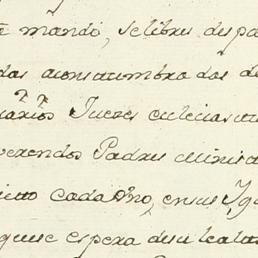 mandó, se libres despa
das aconstumbra dos de
iarios Jueces eclecias
verendos Padres Minis
cada Año, en sus Ygl
que se espera de su lealta